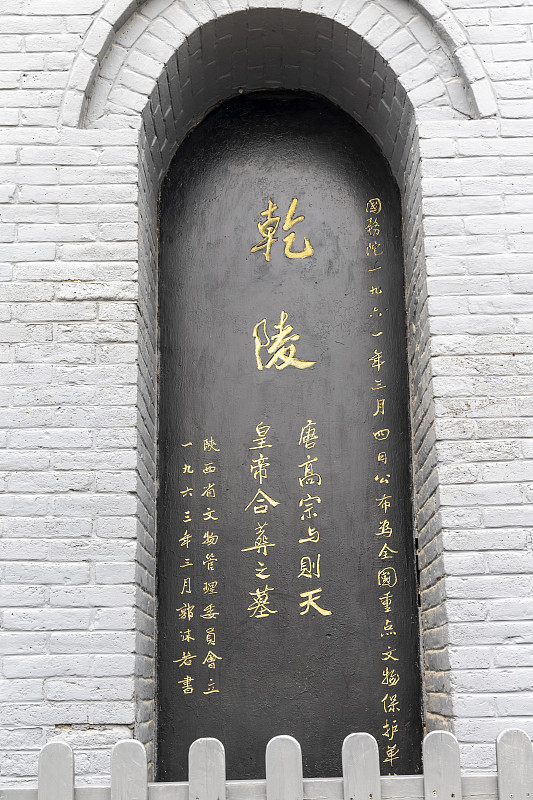 国务院一九六一年三月四日公布为全國重点文物保护单
乾陵
唐高宗与则天
皇帝合葬之墓
陕西省文物管理委員會立
一九六三年三月郭沫若書